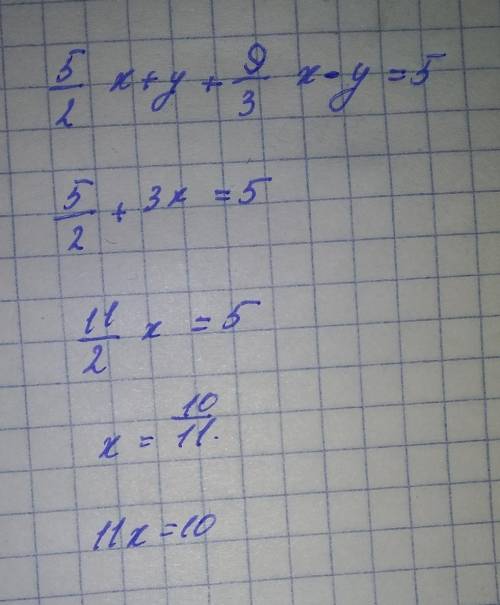 5/2 x+y + 9/3 x-y = 5
5/2 + 3x = 5
11/2 x = 5
x = 10/11.
11x = 10